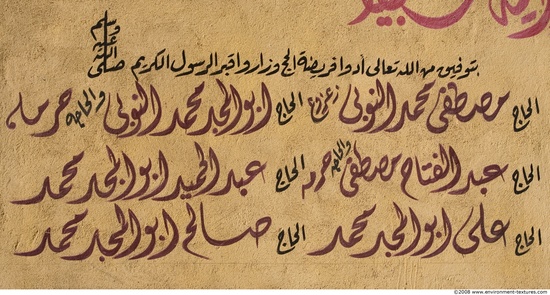 بتوفيق من الله تعالى أدوا فريضة الحج وزاروا قبر الرسول الكريم صلى الله عليه وسلم
الحاج مصطفى محمد النوبى الحاج ابو المجد محمد النوبى والحاجه حرمه
الحاج عبد الفتاح مصطفى والحاجه حرمه الحاج عبد الحميد ابو المجد محمد
الحاج على ابو المجد محمد الحاج صالح ابو المجد محمد
©2008 www.environment-textures.com